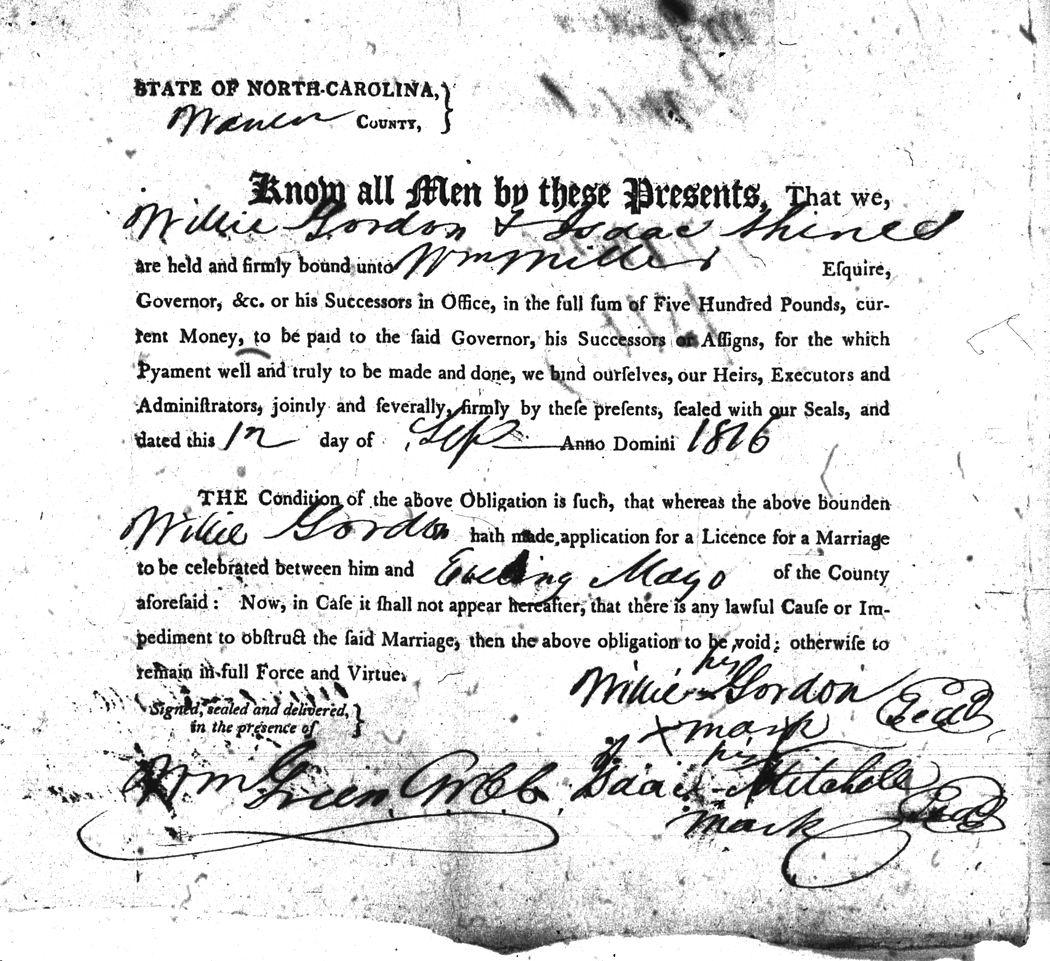 STATE OF NORTH-CAROLINA,
Warren COUNTY,
Know all Men by these Presents, That we,
Willie Gordon & Isaac
are held and firmly bound unto Wm Miller Eſquire,
Governor, &c. or his Successors in Office, in the full ſum of Five Hundred Pounds, cur-
rent Money, to be paid to the ſaid Governor, his Successors or Aſſigns, for the which
Pyament well and truly to be made and done, we bind ourſelves, our Heirs, Executors and
Adminiſtrators, jointly and ſeverally, firmly by theſe preſents, ſealed with our Seals, and
dated this 12 day of Sep Anno Domini 1816
THE Condition of the above Obligation is ſuch, that whereas the above bounden
Willie Gordon hath made application for a Licence for a Marriage
to be celebrated between him and Eveling Mayo of the County
aforeſaid: Now, in Caſe it ſhall not appear hereafter, that there is any lawful Cauſe or Im-
pediment to obſtruct the ſaid Marriage, then the above obligation to be void; otherwiſe to
remain in full Force and Virtue.
his
Willie Gordon Seal
X mark
Signed, sealed and delivered,
in the presence of
his
Wm Green Isaac Mitchell Seal
mark